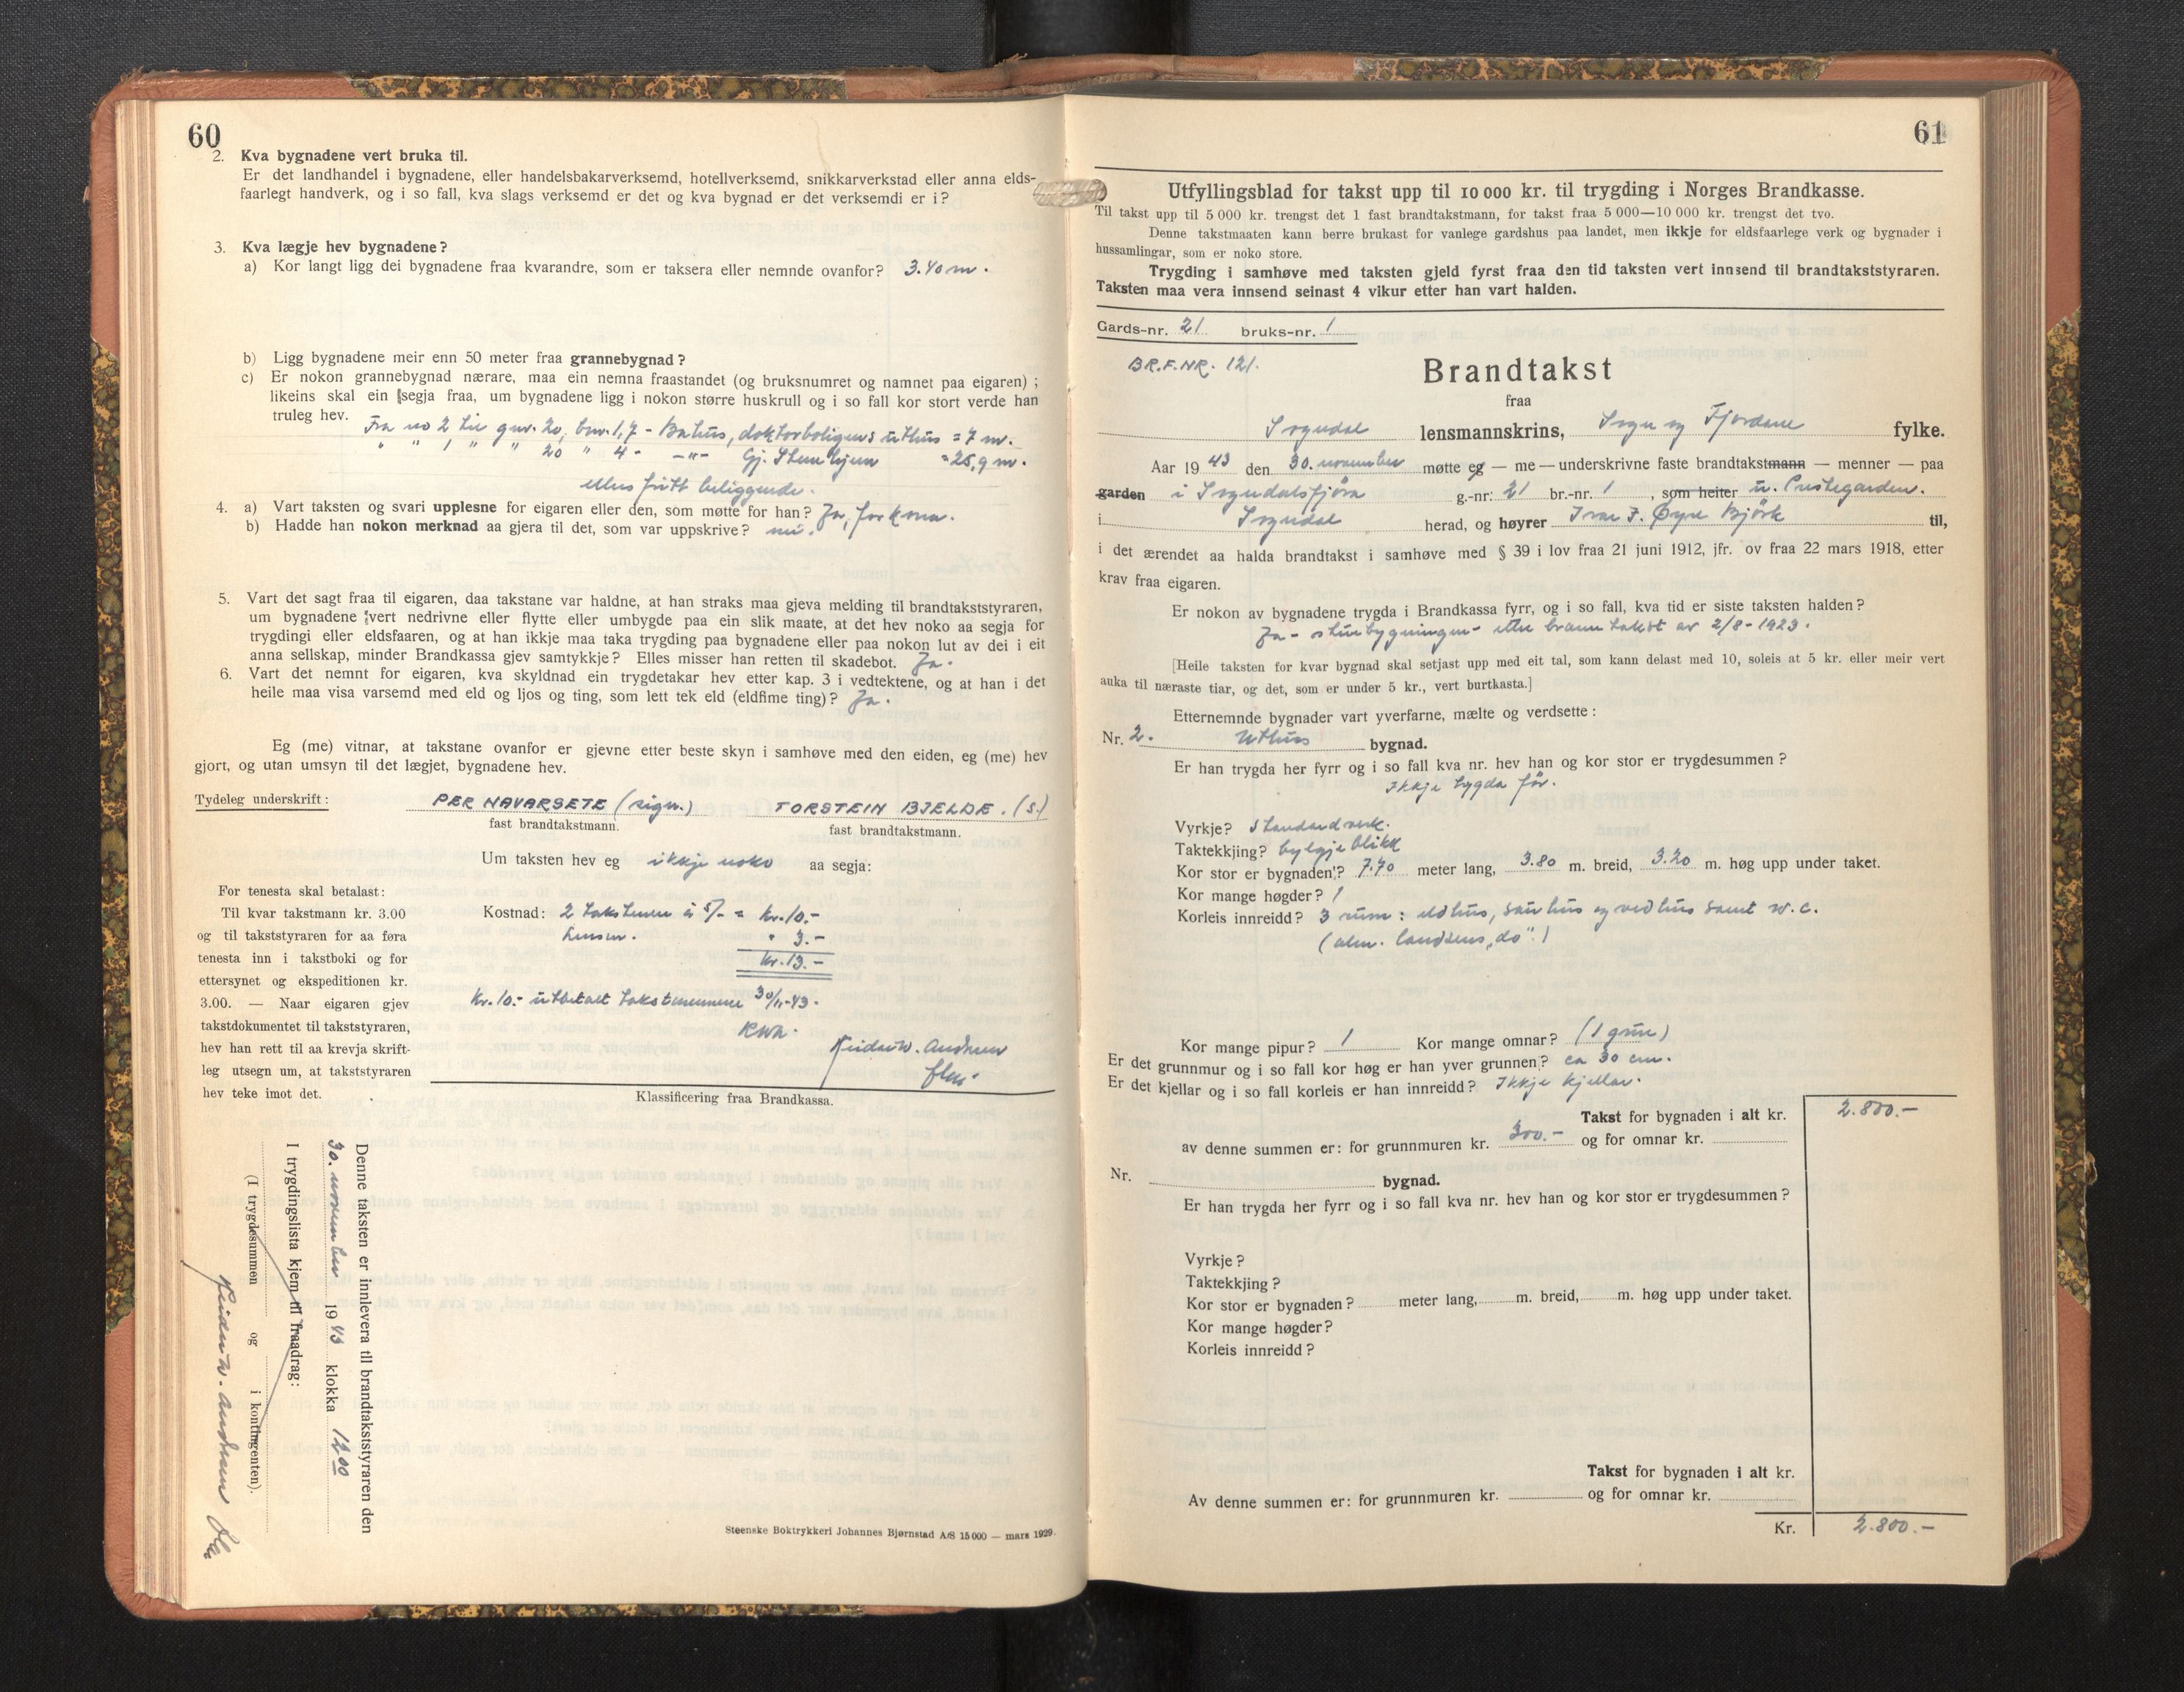 60
2. Kva bygnadene vert bruka til.
Er det landhandel i bygnadene, eller handelsbakarverksemd, hotellverksemd, snikkarverkstad eller anna elds-
faarlegt handverk, og i so fall, kva slags verksemd er det og kva bygnad er det verksemdi er i?
3. Kva lægje hev bygnadene?
a) Kor langt ligg dei bygnadene fraa kvarandre, som er taksera eller nemnde ovanfor? 3.40 m.
b) Ligg bygnadene meir enn 50 meter fraa grannebygnad?
c) Er nokon grannebygnad nærare, maa ein nemna fraastandet (og bruksnumret og namnet paa eigaren);
likeins skal ein segja fraa, um bygnadene ligg i nokon større huskrull og i so fall kor stort verde han
truleg hev.
Fra no 2 til gnr. 20, bnr. 1,7 - Bahus, doktorboligens uthus = 7 m.
" " 1 " " 20 " 4 - -"- Gj. Stenehjem = 25,9 m.
ellers fritt beliggende.
4. a) Vart taksten og svari upplesne for eigaren eller den, som møtte for han? Ja, for kona.
b) Hadde han nokon merknad aa gjera til det, som var uppskrive? nei.
5. Vart det sagt fraa til eigaren, daa takstane var haldne, at han straks maa gjeva melding til brandtakststyraren,
um bygnadene vert nedrivne eller flytte eller umbygde paa ein slik maate, at det hev noko aa segja for
trygdingi eller eldsfaaren, og at han ikkje maa taka trygding paa bygnadene eller paa nokon lut av dei i eit
anna sellskap, minder Brandkassa gjev samtykkje? Elles misser han retten til skadebot. Ja.
6. Vart det nemnt for eigaren, kva skyldnad ein trygdetakar hev etter kap. 3 i vedtektene, og at han i det
heile maa visa varsemd med eld og ljos og ting, som lett tek eld (eldfime ting)? Ja.
Eg (me) vitnar, at takstane ovanfor er gjevne etter beste skyn i samhøve med den eiden, eg (me) hev
gjort, og utan umsyn til det lægjet, bygnadene hev.
Tydeleg underskrift: PER NAVARSETE (sign.) TORSTEIN BJELDE. (s.)
fast brandtakstmann. fast brandtakstmann.
Um taksten hev eg ikkje noko aa segja:
For tenesta skal betalast:
Til kvar takstmann kr. 3.00
og til takststyraren for aa føra
tenesta inn i takstboki og for
ettersynet og ekspeditionen kr.
3.00. — Naar eigaren gjev
takstdokumentet til takststyraren,
hev han rett til aa krevja skrift-
leg utsegn um, at takststyraren
hev teke imot det.
Kostnad: 2 takstmenn à 5/- = kr. 10.-
Lensm. " 3.-
kr. 13.-
Kr. 10.- utbetalt takstmennene 30/11-43.
RWA.
Reidar W. Andersen
Klassificering fraa Brandkassa.
Denne taksten er innlevera til brandtakststyraren den
30. november 1943 klokka 12.00
I trygdingslista kjem til fraadrag:
(I trygdesummen og i kontingenten).
Reidar W. Andersen
Steenske Boktrykkeri Johannes Bjørnstad A/S 15 000 — mars 1929.
61
Utfyllingsblad for takst upp til 10 000 kr. til trygding i Norges Brandkasse.
Til takst upp til 5 000 kr. trengst det 1 fast brandtakstmann, for takst fraa 5 000—10 000 kr. trengst det tvo.
Denne takstmaaten kann berre brukast for vanlege gardshus paa landet, men ikkje for eldsfaarlege verk og bygnader i
hussamlingar, som er noko store.
Trygding i samhøve med taksten gjeld fyrst fraa den tid taksten vert innsend til brandtakststyraren.
Taksten maa vera innsend seinast 4 vikur etter han vart halden.
Gards-nr. 21 bruks-nr. 1
BR.F.NR. 121.
Brandtakst
fraa
Sogndal lensmannskrins, Sogn og Fjordane fylke.
Aar 1943 den 30. november møtte eg — me — underskrivne faste brandtakstmann — menner — paa
garden i Sogndalsfjøra g.-nr. 21 br.-nr. 1, som heiter u. Prestegarden.
i Sogndal herad, og høyrer Ivar F. Øyre Björk til,
i det ærendet aa halda brandtakst i samhøve med § 39 i lov fraa 21 juni 1912, jfr. ov fraa 22 mars 1918, etter
krav fraa eigaren.
Er nokon av bygnadene trygda i Brandkassa fyrr, og i so fall, kva tid er siste taksten halden?
Ja - stuebygningen - etter branntakst av 2/8-1923.
[Heile taksten for kvar bygnad skal setjast upp med eit tal, som kann delast med 10, soleis at 5 kr. eller meir vert
auka til næraste tiar, og det, som er under 5 kr., vert burtkasta.]
Etternemnde bygnader vart yverfarne, mælte og verdsette:
Nr. 2. Uthus bygnad.
Er han trygda her fyrr og i so fall kva nr. hev han og kor stor er trygdesummen?
Ikkje trygda før.
Vyrkje? Standardverk.
Taktekkjing? bylgjeblikk
Kor stor er bygnaden? 7.70 meter lang, 3.80 m. breid, 3.20 m. høg upp under taket.
Kor mange høgder? 1
Korleis innreidd? 3 rum: eldhus, sauhus og vedhus samt w.c.
(alm. landsens "do".)
Kor mange pipur? 1 Kor mange omnar? (1 grue)
Er det grunnmur og i so fall kor høg er han yver grunnen? ca 30 cm.
Er det kjellar og i so fall korleis er han innreidd? Ikkje kjellar.
Takst for bygnaden i alt kr. 2.800.-
av denne summen er: for grunnmuren kr. 300.- og for omnar kr.
Nr. bygnad.
Er han trygda her fyrr og i so fall kva nr. hev han og kor stor er trygdesummen?
Vyrkje?
Taktekkjing?
Kor stor er bygnaden? meter lang, m. breid, m. høg upp under taket.
Kor mange høgder?
Korleis innreidd?
Takst for bygnaden i alt kr.
Av denne summen er: for grunnmuren kr. og for omnar kr.
Kr. 2.800.-